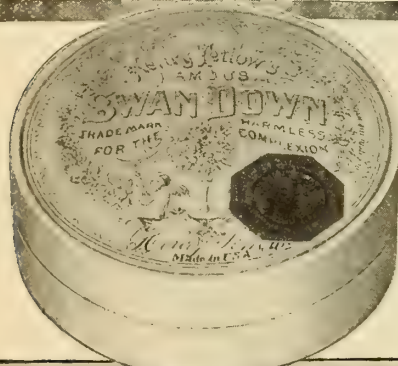 Henry Tetlow's
FAMOUS
SWAN DOWN
TRADE MARK HARMLESS
FOR THE COMPLEXION
Henry Tetlow
Made in U.S.A.